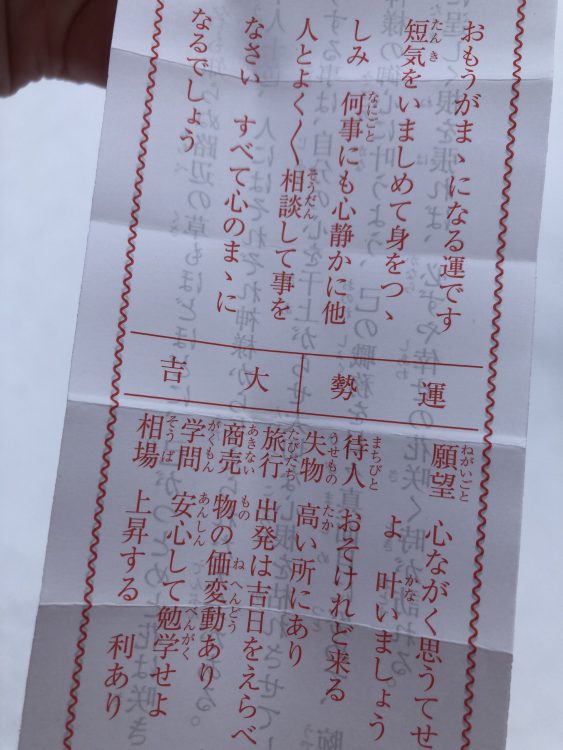 おもうがまゝになる運です
短気をいましめて身をつゝ
しみ 何事にも心静かに他
人とよく〳〵相談して事を
なさい すべて心のまゝに
なるでしょう
運勢 大吉
願望 心ながく思うてせ
よ 叶いましょう
待人 おそけれど来る
失物 高い所にあり
旅行 出発は吉日をえらべ
商売 物の価変動あり
学問 安心して勉学せよ
相場 上昇する 利あり